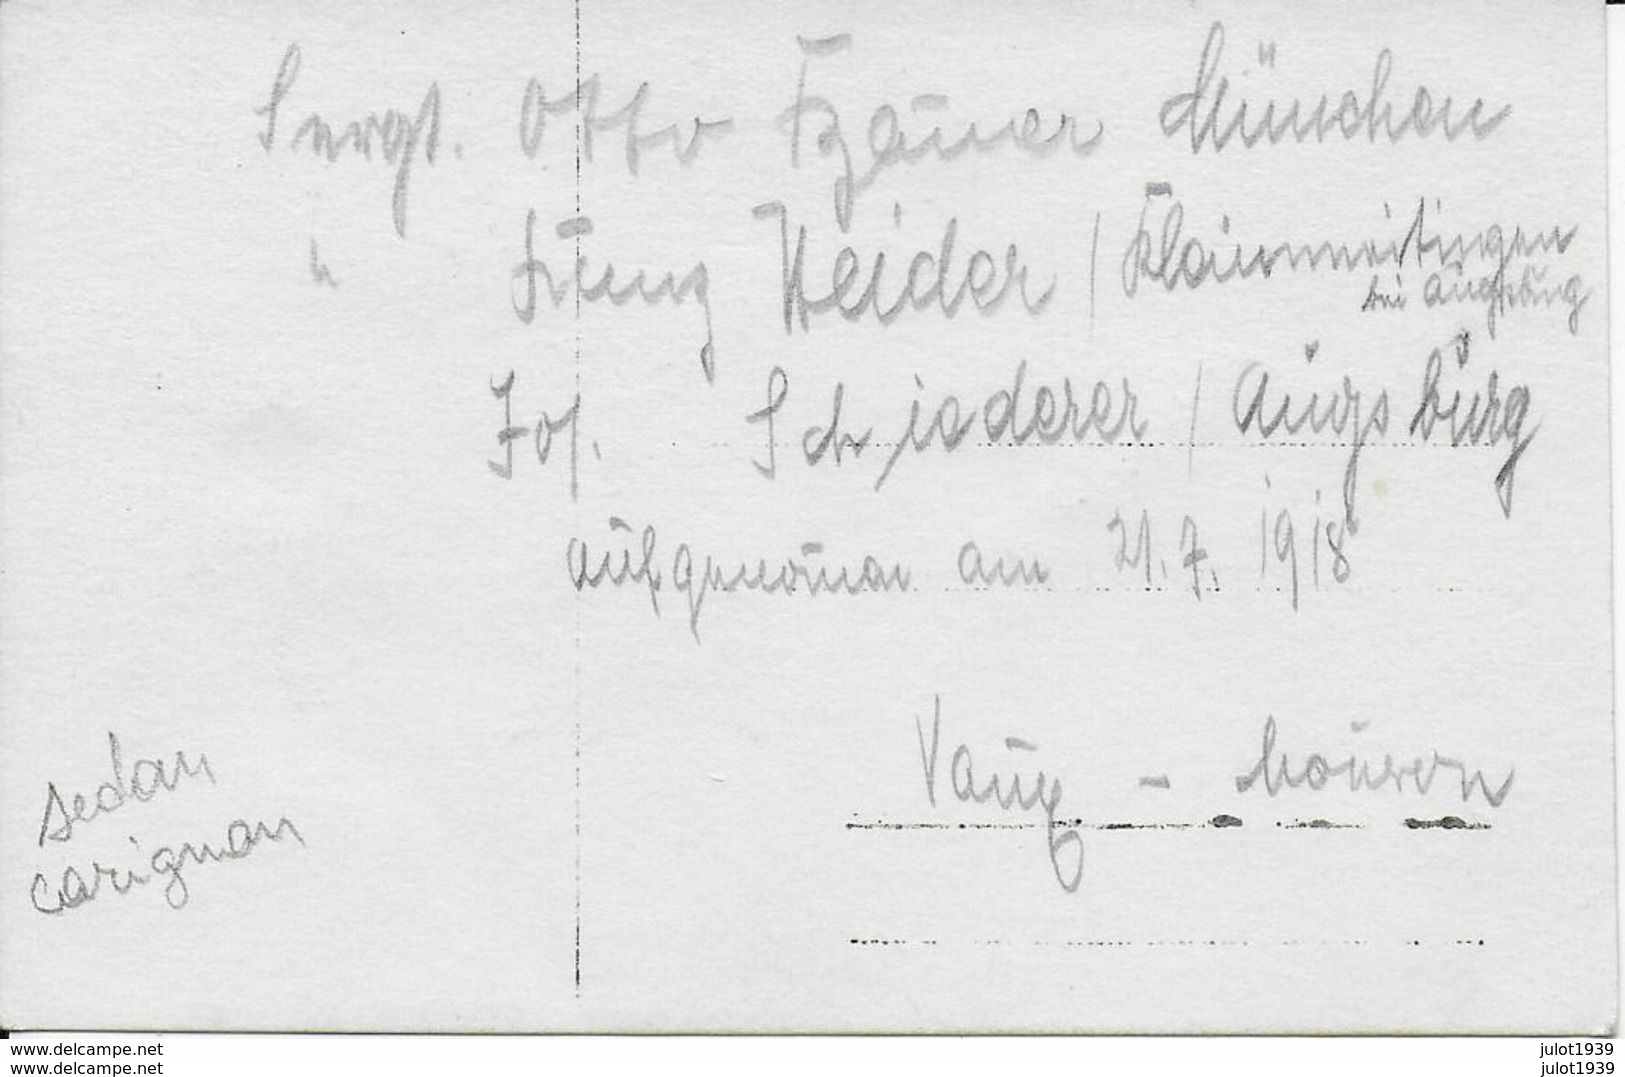 Sergt. Otto Bauer München
" Franz Heider / Kleinaitingen
bei Augsburg
Jos. Schiederer / Augsburg
aufgenom̄en am 21.7.1918
Vaux - Mouron
sedan
carignan
www.delcampe.net
www.delcampe.net
julot1939
julot1939